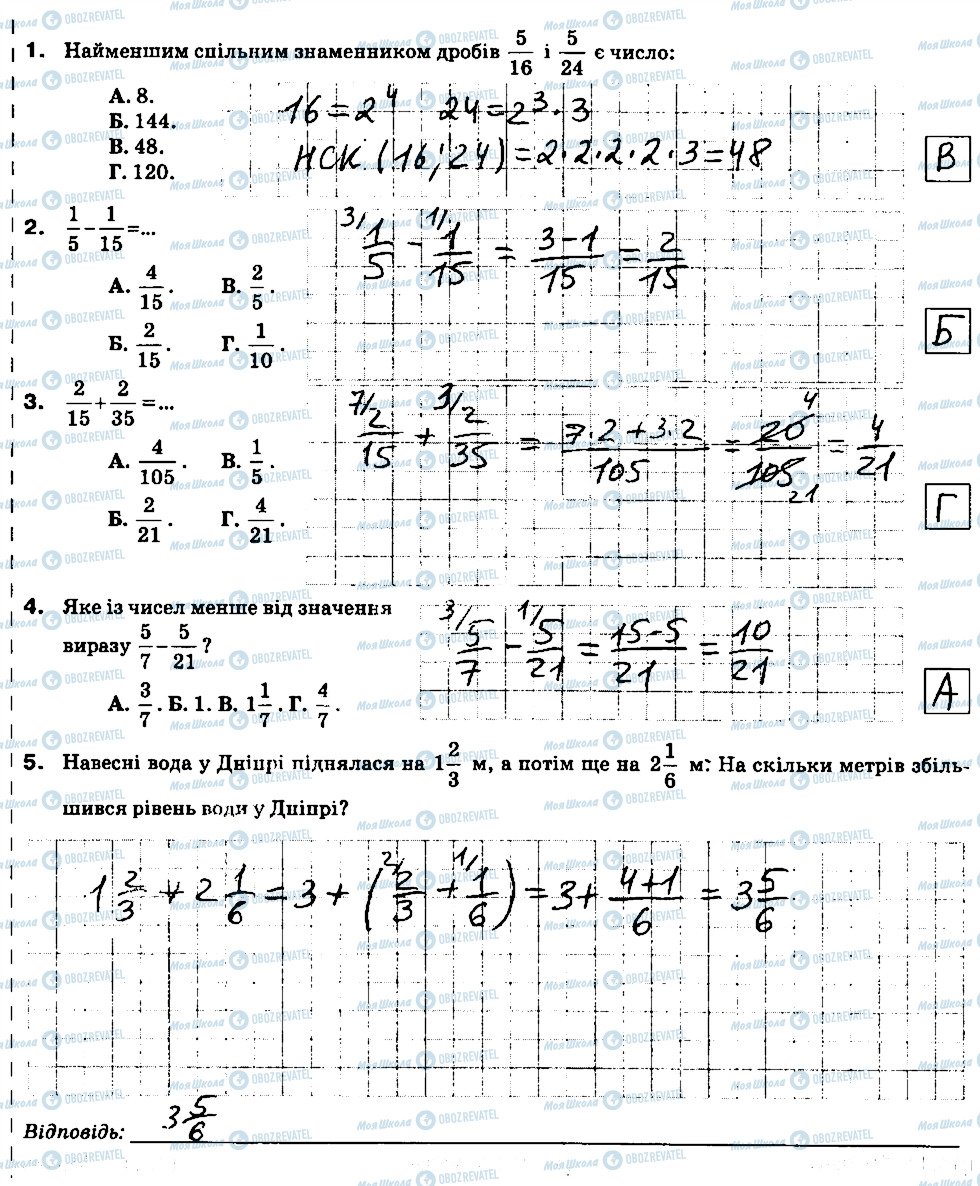 1. Найменшим спільним знаменником дробів 5/16 і 5/24 є число:
А. 8.
Б. 144.
В. 48.
Г. 120.
16 = 2⁴ 24 = 2³ · 3
НСК (16; 24) = 2·2·2·2·3 = 48
В
2. 1/5 − 1/15 = ...
А. 4/15. В. 2/5.
Б. 2/15. Г. 1/10.
3/ 1/5 − 1/ 1/15 = (3−1)/15 = 2/15
Б
3. 2/15 + 2/35 = ...
А. 4/105. В. 1/5.
Б. 2/21. Г. 4/21.
7/ 2/15 + 3/ 2/35 = (7·2 + 3·2)/105 = 20/105 4 21 = 4/21
Г
4. Яке із чисел менше від значення
виразу 5/7 − 5/21 ?
А. 3/7. Б. 1. В. 1 1/7. Г. 4/7.
3/ 5/7 − 1/ 5/21 = (15−5)/21 = 10/21
А
5. Навесні вода у Дніпрі піднялася на 1 2/3 м, а потім ще на 2 1/6 м. На скільки метрів збіль-
шився рівень води у Дніпрі?
1 2/3 + 2 1/6 = 3 + (2/ 2/3 + 1/ 1/6) = 3 + (4+1)/6 = 3 5/6
Відповідь: 3 5/6
МояШкола OBOZREVATEL